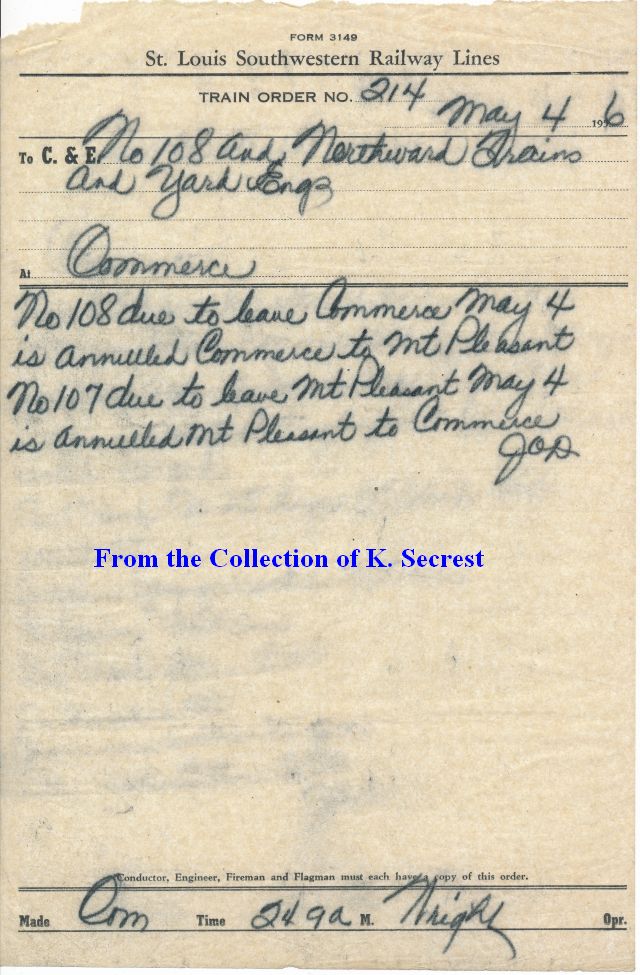 FORM 3149
St. Louis Southwestern Railway Lines
TRAIN ORDER NO. 214 May 4 1956
To C. & E. No 108 and Northward Trains
And Yard Engs
At Commerce
No 108 due to leave Commerce May 4
is annulled Commerce to Mt Pleasant
No 107 due to leave Mt Pleasant May 4
is annulled Mt Pleasant to Commerce
JOD
From the Collection of K. Secrest
Conductor, Engineer, Fireman and Flagman must each have a copy of this order.
Made Com Time 249a M. Wright Opr.